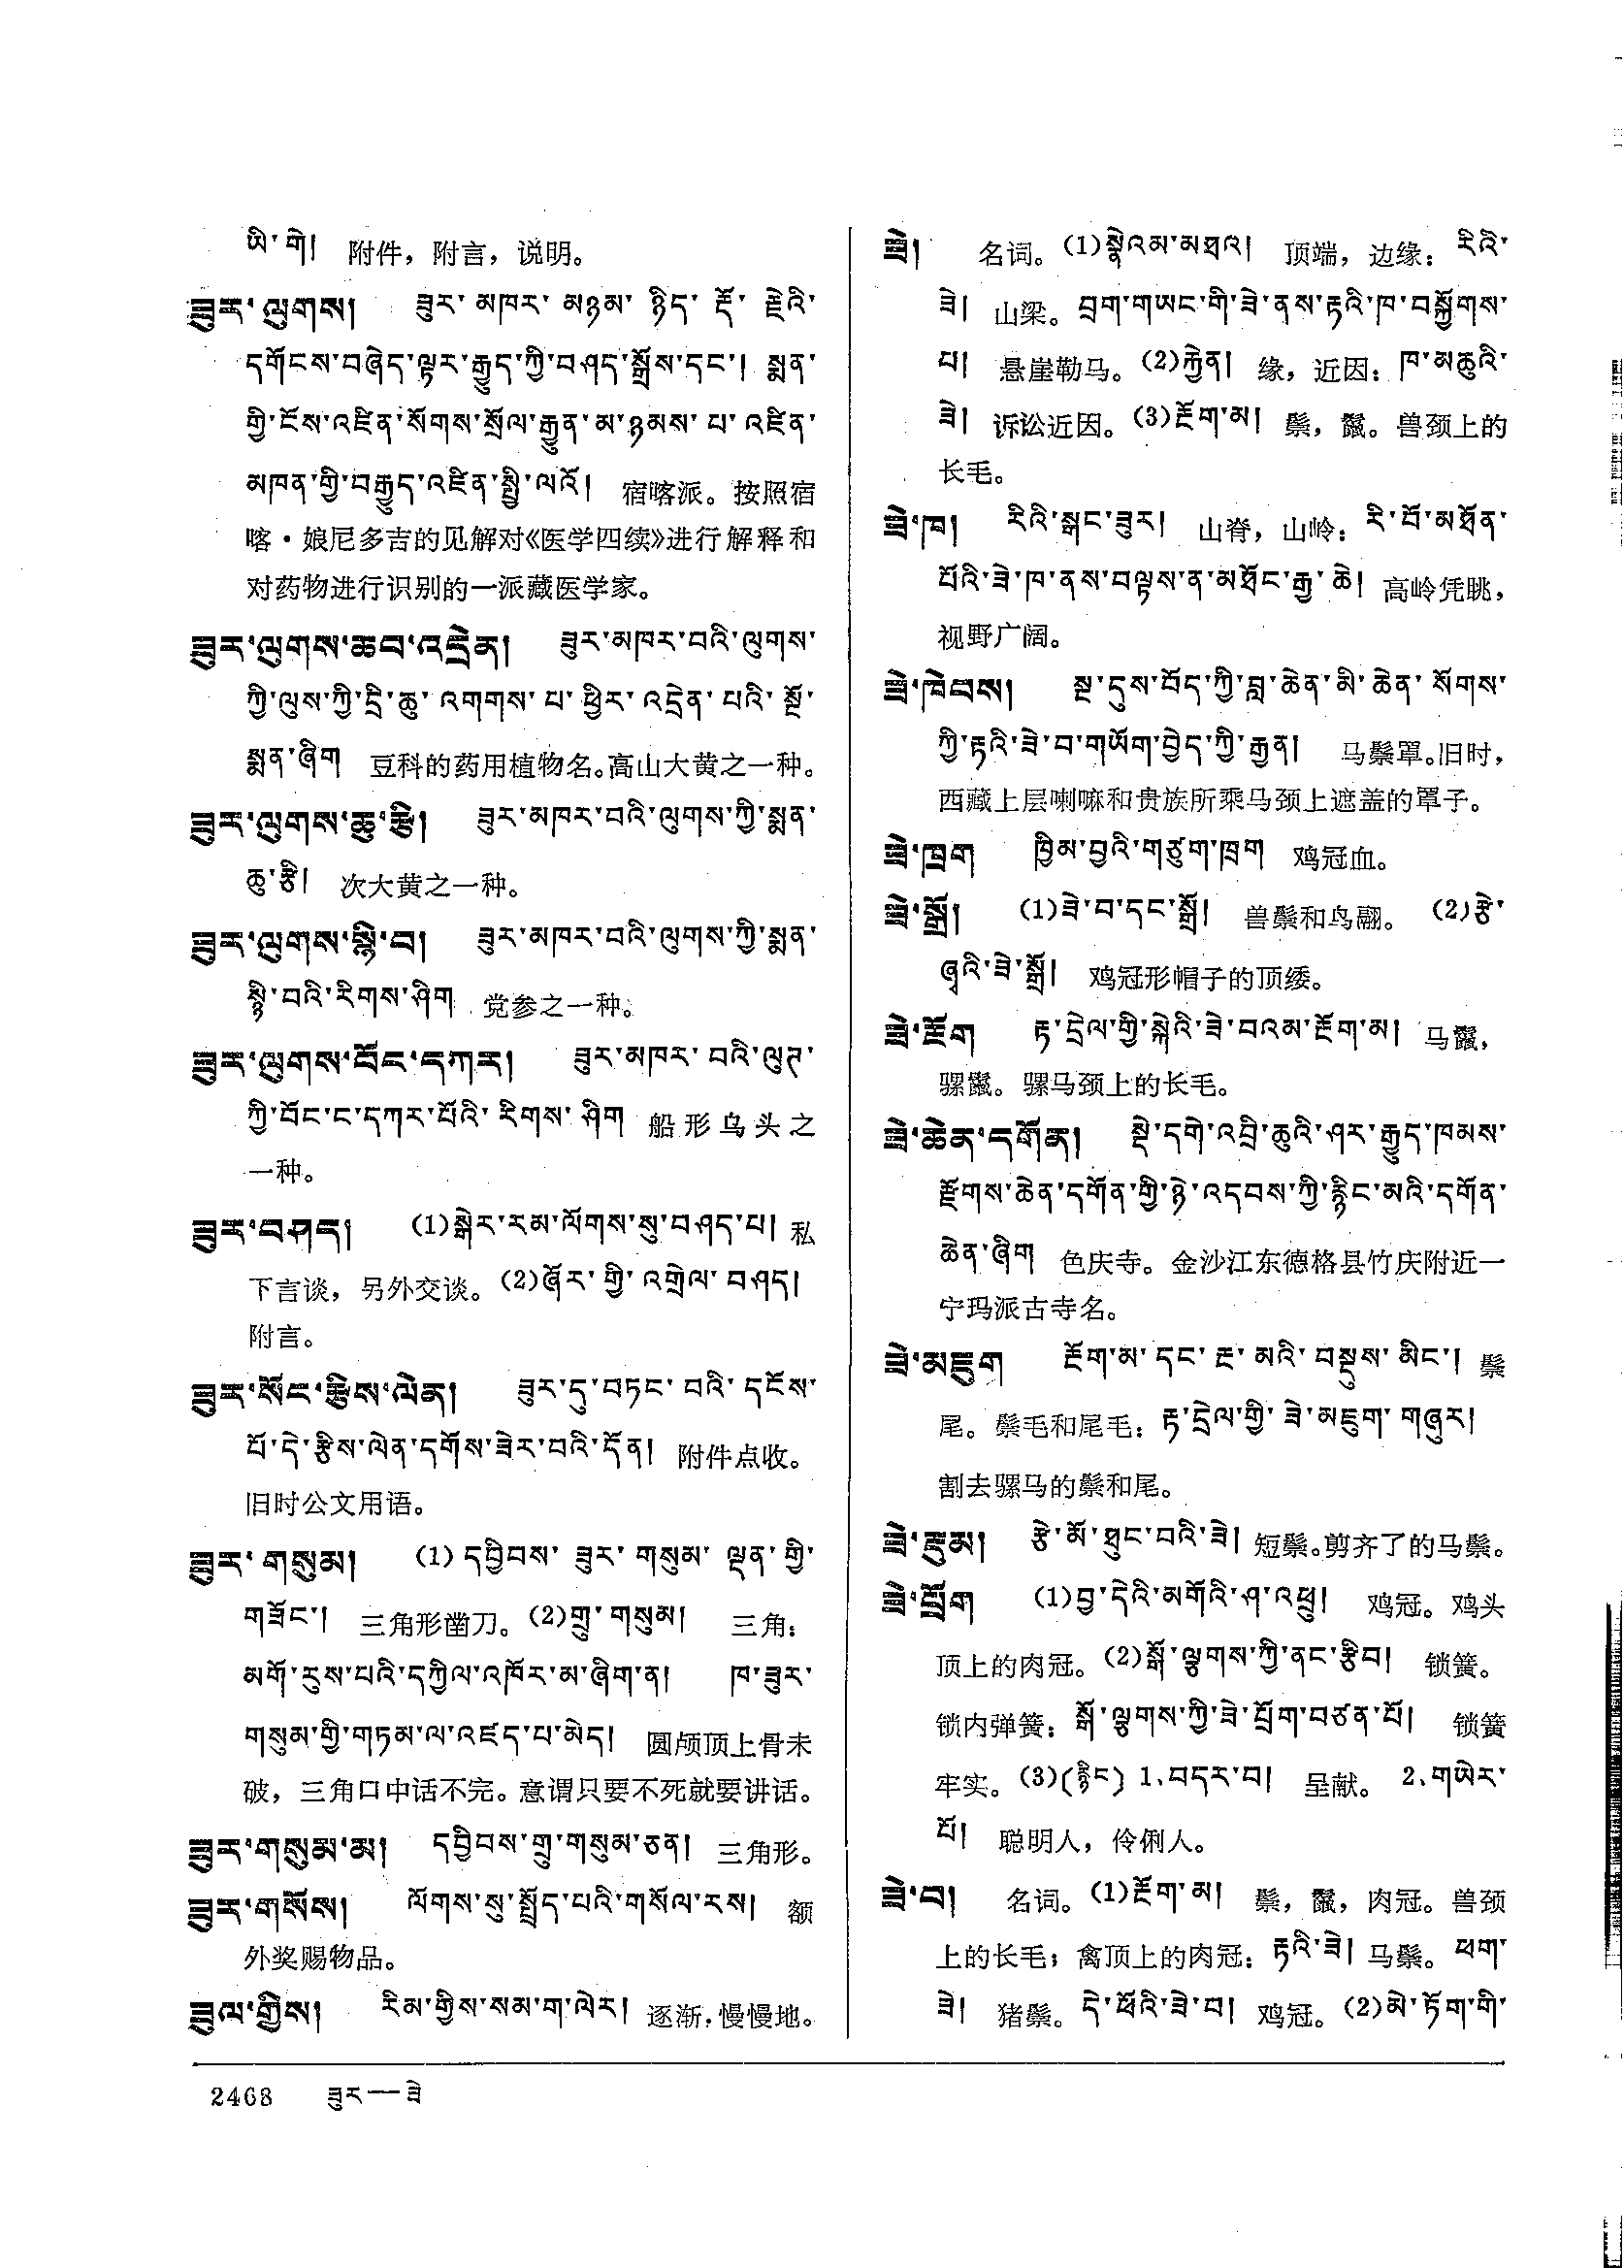 ཡི་གེ། 附件，附言，说明。
ཟུར་ལུགས། ཟུར་མཁར་མཉམ་ཉིད་རྡོ་རྗེའི་
དགོངས་བཞེད་ལྟར་རྒྱུད་ཀྱི་བཤད་སྒྲོས་དང་། སྨན་
གྱི་ངོས་འཛིན་སོགས་སྲོལ་རྒྱུན་མ་ཉམས་པ་འཛིན་
མཁན་གྱི་བརྒྱུད་འཛིན་སྤྱི་ལའོ། 宿喀派。按照宿
喀·娘尼多吉的见解对《医学四续》进行解释和
对药物进行识别的一派藏医学家。
ཟུར་ལུགས་ཆབ་འདྲེན། ཟུར་མཁར་བའི་ལུགས་
ཀྱི་ལུས་ཀྱི་དྲི་ཆུ་འགགས་པ་ཕྱིར་འདྲེན་པའི་སྔོ་
སྨན་ཞིག 豆科的药用植物名。高山大黄之一种。
ཟུར་ལུགས་ཆུ་རྩི། ཟུར་མཁར་བའི་ལུགས་ཀྱི་སྨན་
ཆུ་རྩི། 次大黄之一种。
ཟུར་ལུགས་སྙི་བ། ཟུར་མཁར་བའི་ལུགས་ཀྱི་སྨན་
སྙི་བའི་རིགས་ཤིག 党参之一种。
ཟུར་ལུགས་བོང་དཀར། ཟུར་མཁར་བའི་ལུཊ་
ཀྱི་བོང་ང་དཀར་པོའི་རིགས་ཤིག 船形乌头之
一种。
ཟུར་བཤད། (1)སྒེར་རམ་ལོགས་སུ་བཤད་པ། 私
下言谈，另外交谈。(2)ཞོར་གྱི་འགྲེལ་བཤད།
附言。
ཟུར་སོང་རྩིས་ལེན། ཟུར་དུ་བཏང་བའི་དངོས་
པོ་དེ་རྩིས་ལེན་དགོས་ཟེར་བའི་དོན། 附件点收。
旧时公文用语。
ཟུར་གསུམ། (1)དབྱིབས་ཟུར་གསུམ་ལྡན་གྱི་
གཟོང་། 三角形凿刀。(2)གྲུ་གསུམ། 三角：
མགོ་རུས་པའི་དཀྱིལ་འཁོར་མ་ཞིག་ན། ཁ་ཟུར་
གསུམ་གྱི་གཏམ་ལ་འཛད་པ་མེད། 圆颅顶上骨未
破，三角口中话不完。意谓只要不死就要讲话。
ཟུར་གསུམ་མ། དབྱིབས་གྲུ་གསུམ་ཅན། 三角形。
ཟུར་གསོས། ལོགས་སུ་སྤྲོད་པའི་གསོལ་རས། 额
外奖赐物品。
ཟུལ་གྱིས། རིམ་གྱིས་སམ་ག་ལེར། 逐渐，慢慢地。
ཟེ། 名词。(1)སྣེའམ་མཐའ། 顶端，边缘：རིའི་
ཟེ། 山梁。བྲག་གཡང་གི་ཟེ་ནས་རྟའི་ཁ་བསྐྱོགས་
པ། 悬崖勒马。(2)རྐྱེན། 缘，近因：ཁ་མཆུའི་
ཟེ། 诉讼近因。(3)རྔོག་མ། 鬃，鬣。兽颈上的
长毛。
ཟེ་ཁ། རིའི་སྒང་ཟུར། 山脊，山岭：རི་བོ་མཐོན་
པོའི་ཟེ་ཁ་ནས་བལྟས་ན་མཐོང་རྒྱ་ཆེ། 高岭凭眺，
视野广阔。
ཟེ་ཁེབས། སྔ་དུས་བོད་ཀྱི་བླ་ཆེན་མི་ཆེན་སོགས་
ཀྱི་རྟའི་ཟེ་བ་གཡོག་བྱེད་ཀྱི་རྒྱན། 马鬃罩。旧时，
西藏上层喇嘛和贵族所乘马颈上遮盖的罩子。
ཟེ་ཁྲག ཁྱིམ་བྱའི་གཙུག་ཁྲག 鸡冠血。
ཟེ་སྒྲོ། (1)ཟེ་བ་དང་སྒྲོ། 兽鬃和鸟翮。(2)རྩེ་
ཞྭའི་ཟེ་སྒྲོ། 鸡冠形帽子的顶缕。
ཟེ་རྔོག རྟ་དྲེལ་གྱི་སྐེའི་ཟེ་བའམ་རྔོག་མ། 马鬣，
骡鬣。骡马颈上的长毛。
ཟེ་ཆེན་དགོན། སྡེ་དགེ་འབྲི་ཆུའི་ཤར་རྒྱུད་ཁམས་
རྫོགས་ཆེན་དགོན་གྱི་ཉེ་འདབས་ཀྱི་རྙིང་མའི་དགོན་
ཆེན་ཞིག 色庆寺。金沙江东德格县竹庆附近一
宁玛派古寺名。
ཟེ་མཇུག རྔོག་མ་དང་རྔ་མའི་བསྡུས་མིང་། 鬃
尾。鬃毛和尾毛：རྟ་དྲེལ་གྱི་ཟེ་མཇུག་གཞུར།
割去骡马的鬃和尾。
ཟེ་རྡུམ། རྩེ་མོ་ཐུང་བའི་ཟེ། 短鬃。剪齐了的马鬃。
ཟེ་པྲོག (1)བྱ་དེའི་མགོའི་ཤ་འཕྲུ། 鸡冠。鸡头
顶上的肉冠。(2)སྒོ་ལྕགས་ཀྱི་ནང་རྩིབ། 锁簧。
锁内弹簧：སྒོ་ལྕགས་ཀྱི་ཟེ་པྲོག་བཙན་པོ། 锁簧
牢实。(3)(རྙིང) 1、བདར་བ། 呈献。 2、གཡེར་
པོ། 聪明人，伶俐人。
ཟེ་བ། 名词。(1)རྔོག་མ། 鬃，鬣，肉冠。兽颈
上的长毛；禽顶上的肉冠：རྟའི་ཟེ། 马鬃。ཕག་
ཟེ། 猪鬃。དེ་ཕོའི་ཟེ་བ། 鸡冠。(2)མེ་ཏོག་གི་
2468 ཟུར—ཟེ